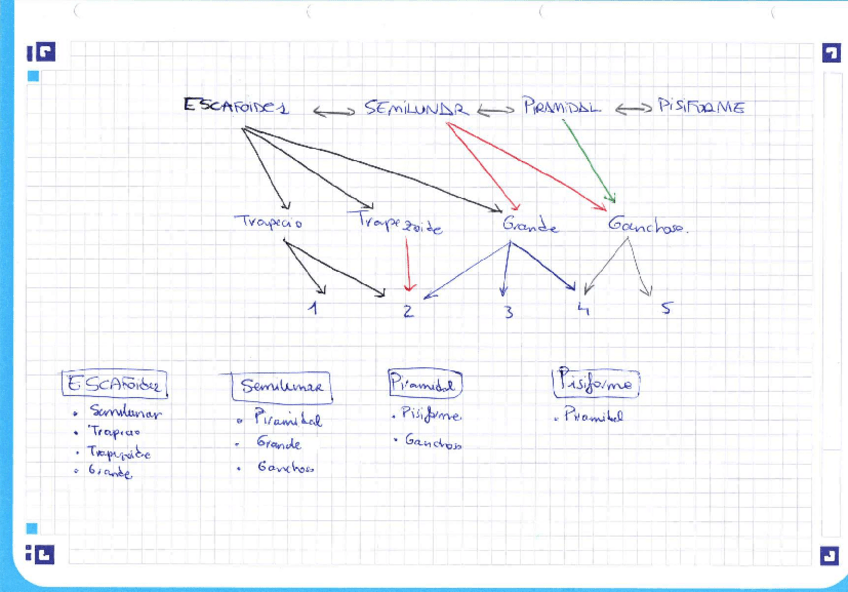 ESCAFOIDES ↔ SEMILUNAR ↔ PIRAMIDAL ↔ PISIFORME
Trapecio Trapezoide Grande Ganchoso.
1 2 3 4 5
ESCAFOIDES Semilunar Piramidal Pisiforme
• Semilunar • Piramidal • Pisiforme • Piramidal
• Trapecio • Grande • Ganchoso
• Trapezoide • Ganchoso
• Grande